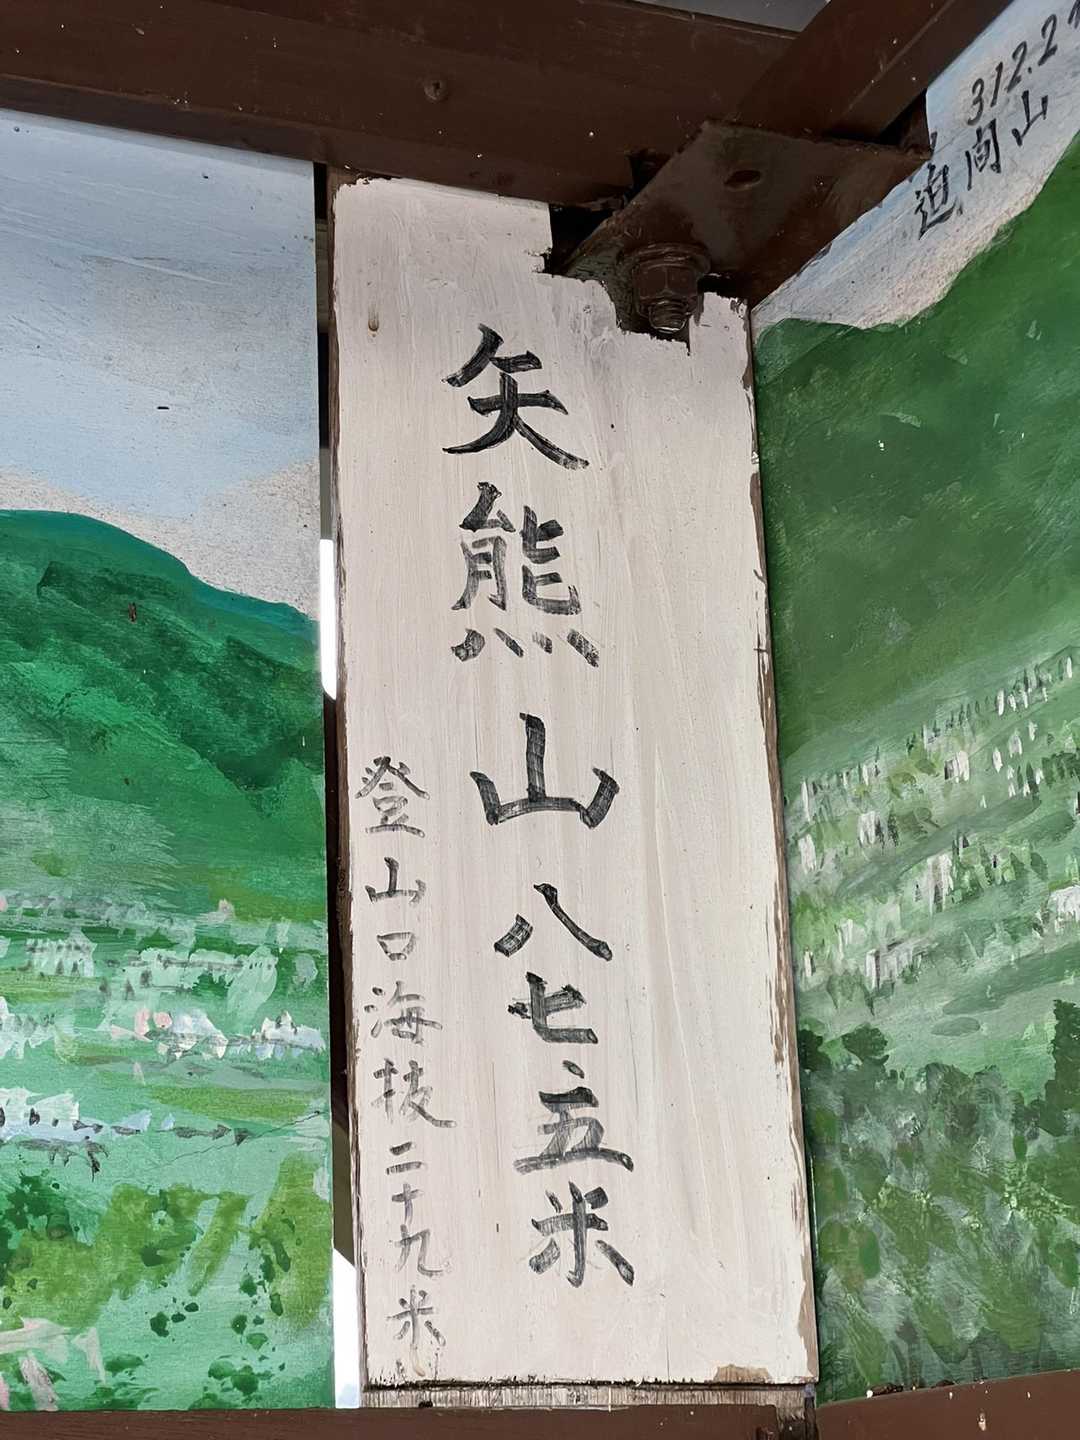 312.2
迫間山
矢熊山八七.五米
登山口海抜二十九米